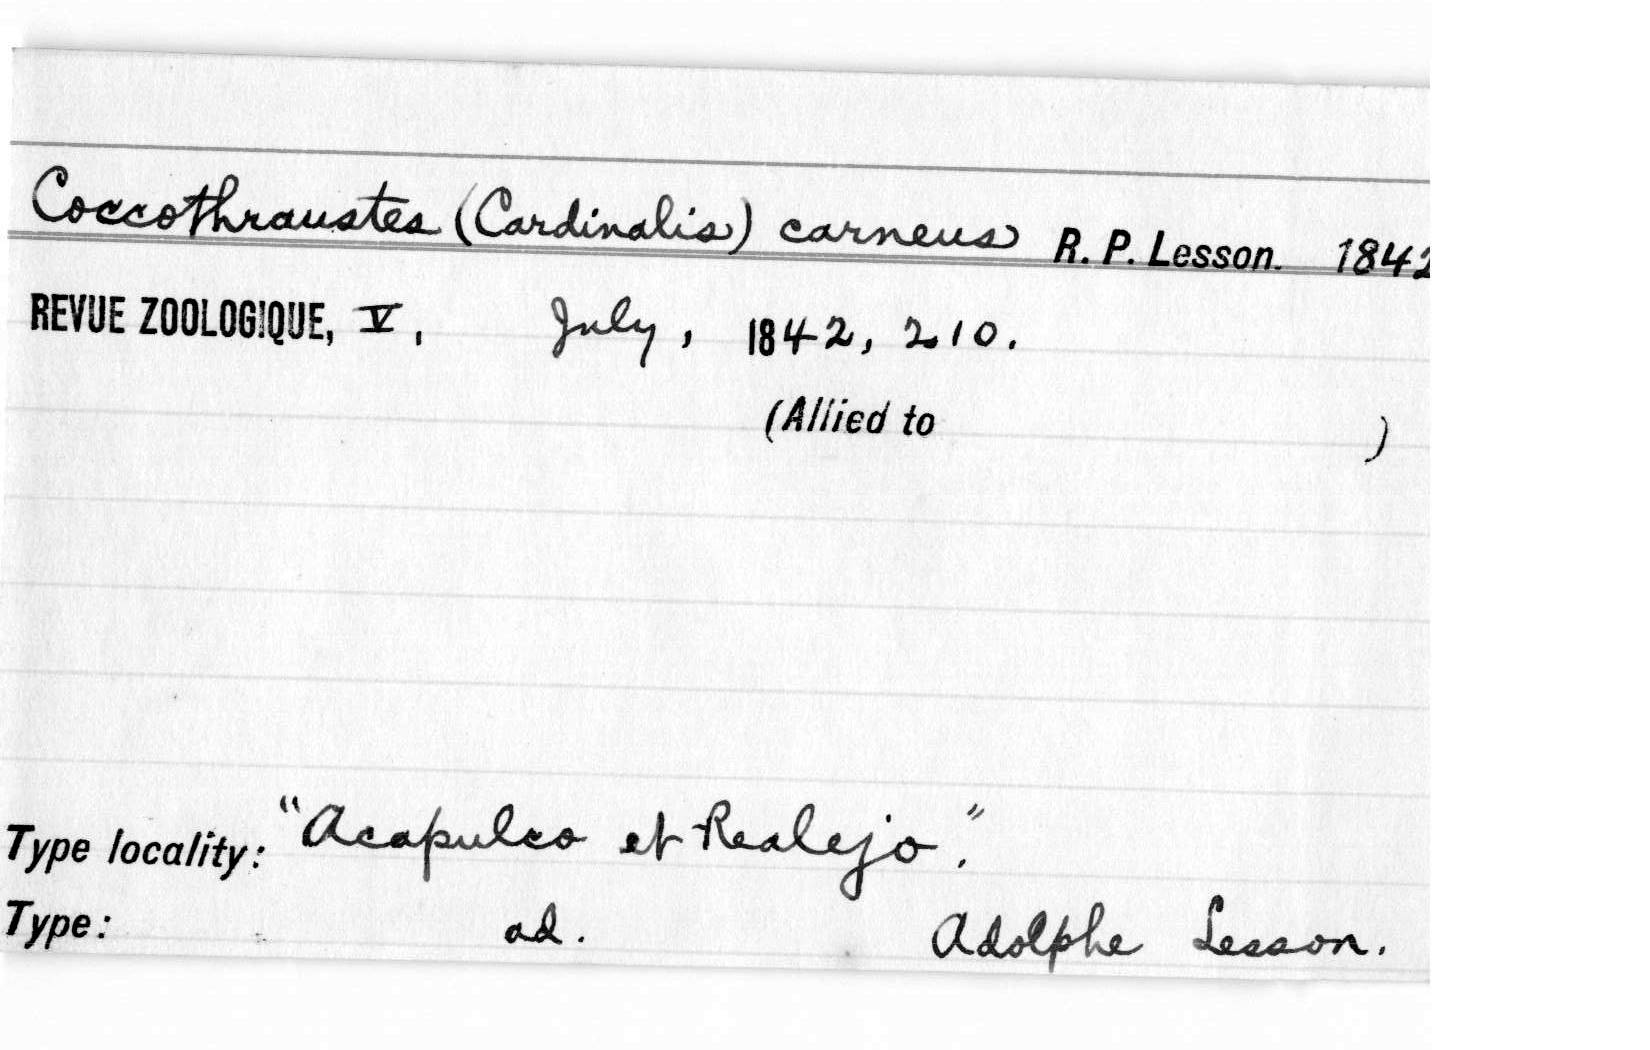 Coccothraustes (Cardinalis) carneus R. P. Lesson. 1842
REVUE ZOOLOGIQUE, V, July, 1842, 210.
(Allied to )
Type locality: "Acapulco et Realejo".
Type: ad. Adolphe Lesson.